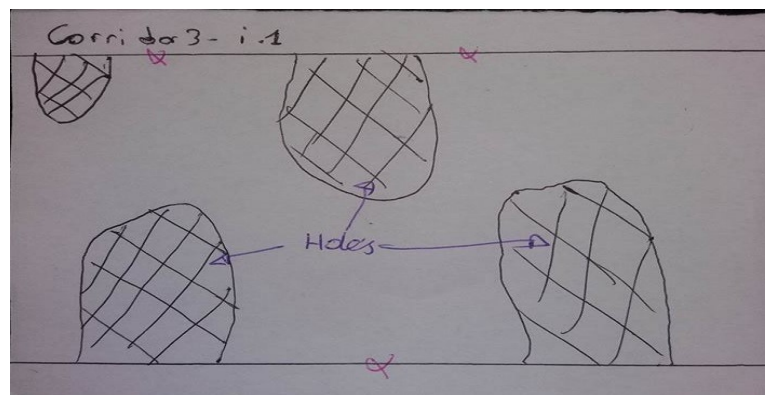 Corridor 3 - i.1
Holes